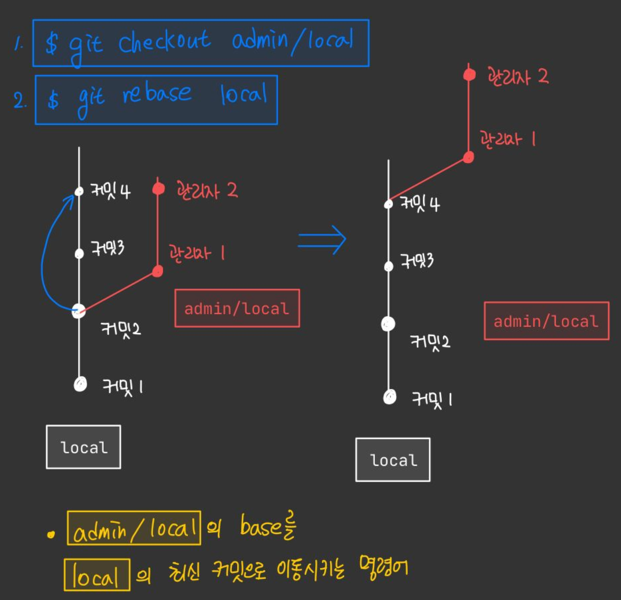 1. $ git checkout admin/local
2. $ git rebase local
커밋4
커밋3
커밋2
커밋1
관리자 2
관리자 1
admin/local
local
관리자 2
관리자 1
커밋4
커밋3
커밋2
커밋1
admin/local
local
• admin/local 의 base를
local 의 최신 커밋으로 이동시키는 명령어